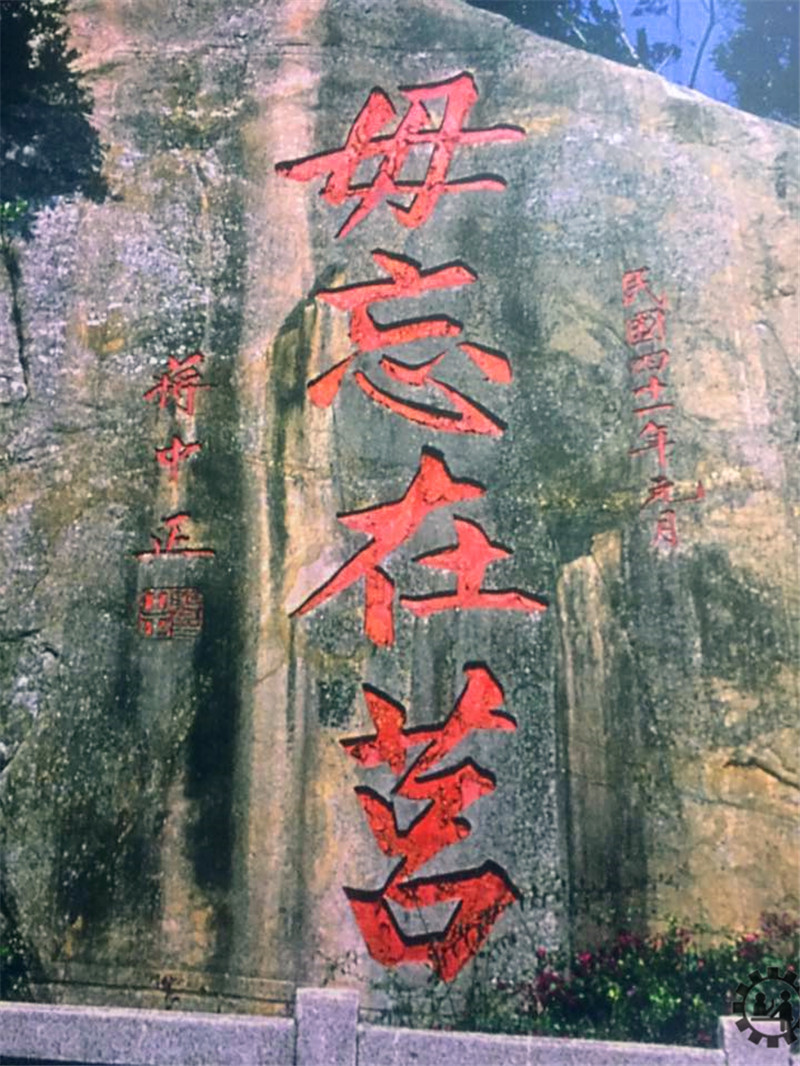 民國四十一年元月
毋忘在莒
蔣中正